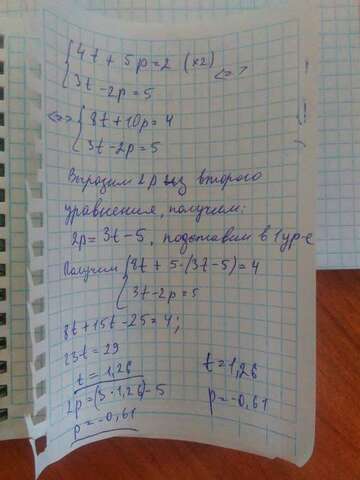 4t + 5p = 2 (×2)
3t - 2p = 5 <=>
<=> 8t + 10p = 4
3t - 2p = 5
Выразим 2p из второго
уравнения, получим:
2p = 3t - 5, подставим в 1 ур-е
Получим 8t + 5·(3t - 5) = 4
3t - 2p = 5
8t + 15t - 25 = 4;
23t = 29
t = 1,26
2p = (3 · 1,26) - 5
p = -0,61
t = 1,26
p = -0,61